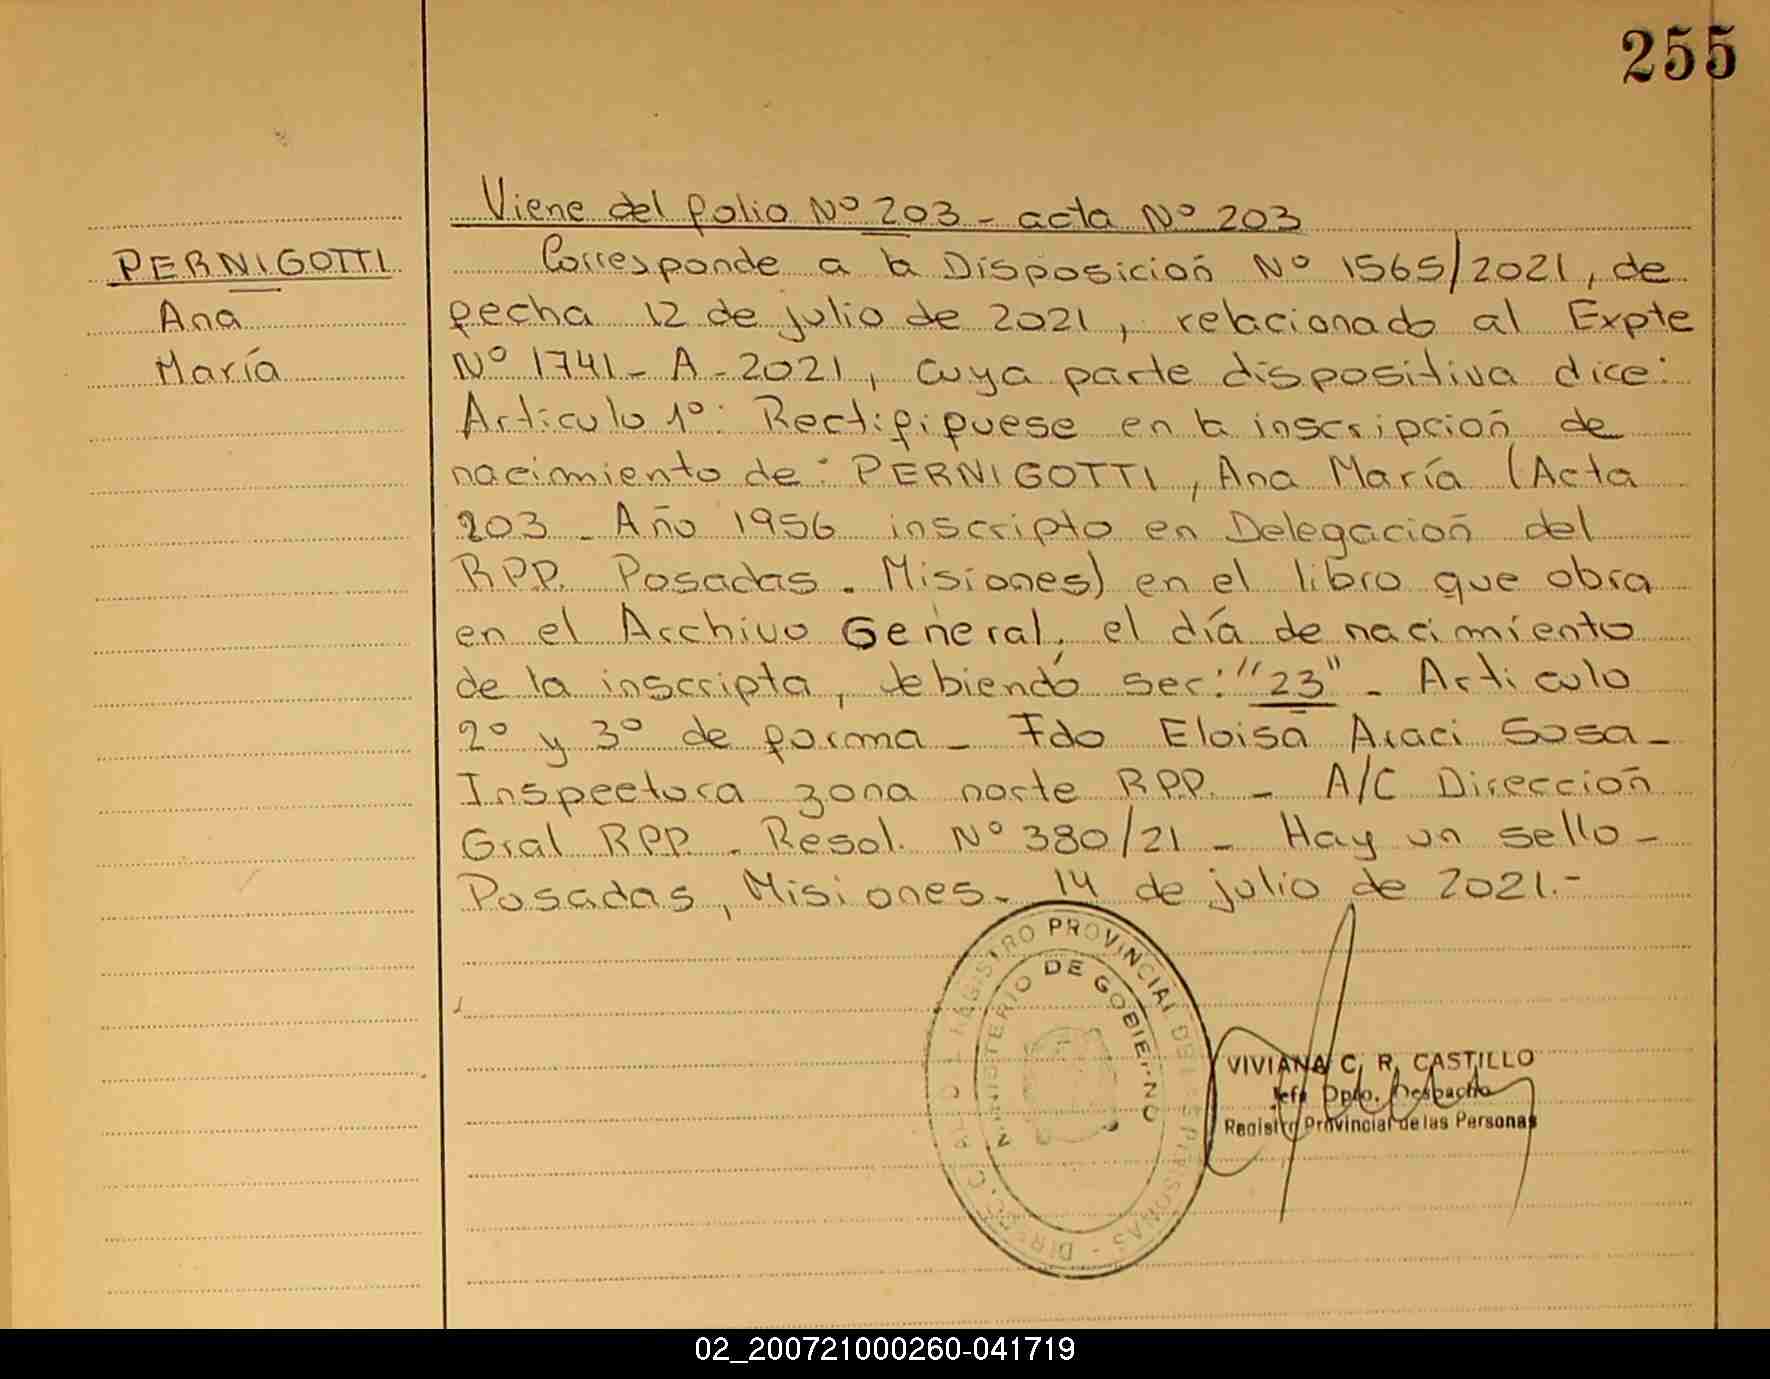 255
Viene del folio Nº 203 - acta Nº 203
PERNIGOTTI
Ana
María
Corresponde a la Disposición Nº 1565/2021, de
fecha 12 de julio de 2021, relacionado al Expte
Nº 1741 - A - 2021, cuya parte dispositiva dice:
Articulo 1º: Rectifiquese en la inscripción de
nacimiento de: PERNIGOTTI, Ana María (Acta
203 - Año 1956 inscripto en Delegación del
RPP. Posadas - Misiones) en el libro que obra
en el Archivo General, el día de nacimiento
de la inscripta, debiendo ser: "23" - Articulo
2º y 3º de forma - Fdo Eloisa Araci Sosa -
Inspectora zona norte RPP. - A/C Dirección
Gral RPP - Resol. Nº 380/21 - Hay un sello -
Posadas, Misiones - 14 de julio de 2021.-
DIREC. GRAL. DEL REGISTRO PROVINCIAL DE LAS PERSONAS -
MINISTERIO DE GOBIERNO
VIVIANA C. R. CASTILLO
Jefa Dpto. Despacho
Registro Provincial de las Personas
02_200721000260-041719